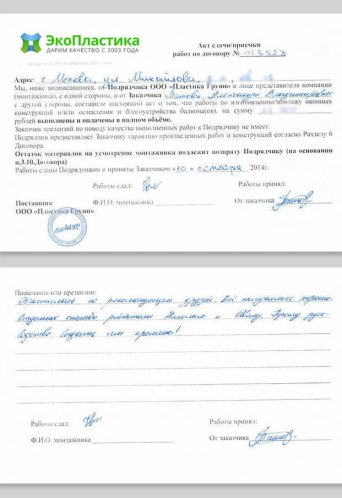 ЭкоПластика
ДАРИМ КАЧЕСТВО С 2003 ГОДА
Акт сдачи/приемки
работ по договору №
Адрес г. Москва, ул. Михайлова,
Мы, ниже подписавшиеся, от Подрядчика ООО «Пластика Групп» в лице представителя компании
(монтажника), с одной стороны, и от Заказчика
с другой стороны, составили настоящий акт о том, что работы по изготовлению/монтажу оконных
конструкций и/или остекления и благоустройства балкона(ов), на сумму
рублей выполнены и оплачены в полном объёме.
Заказчик претензий по поводу качества выполненных работ к Подрядчику не имеет.
Подрядчик предоставляет Заказчику гарантию произведенных работ и конструкций согласно Разделу 6
Договора
Остаток материалов на усмотрение монтажника подлежит возврату Подрядчику (на основании
п.3.10.Договора)
Работы сданы Подрядчиком и приняты Заказчиком «10» октября 2014г.
Работы сдал:
Работы принял:
Поставщик
Ф.И.О. монтажника
От заказчика
ООО «Пластика Групп»
Пожелания или претензии:
Обратились по рекомендации друзей. Всё получилось хорошо.
Отдельное спасибо ребятам Николаю и Ивану. Прошу руко-
водство оценить им премию!
Работы сдал:
Работы принял:
Ф.И.О. монтажника
От заказчика